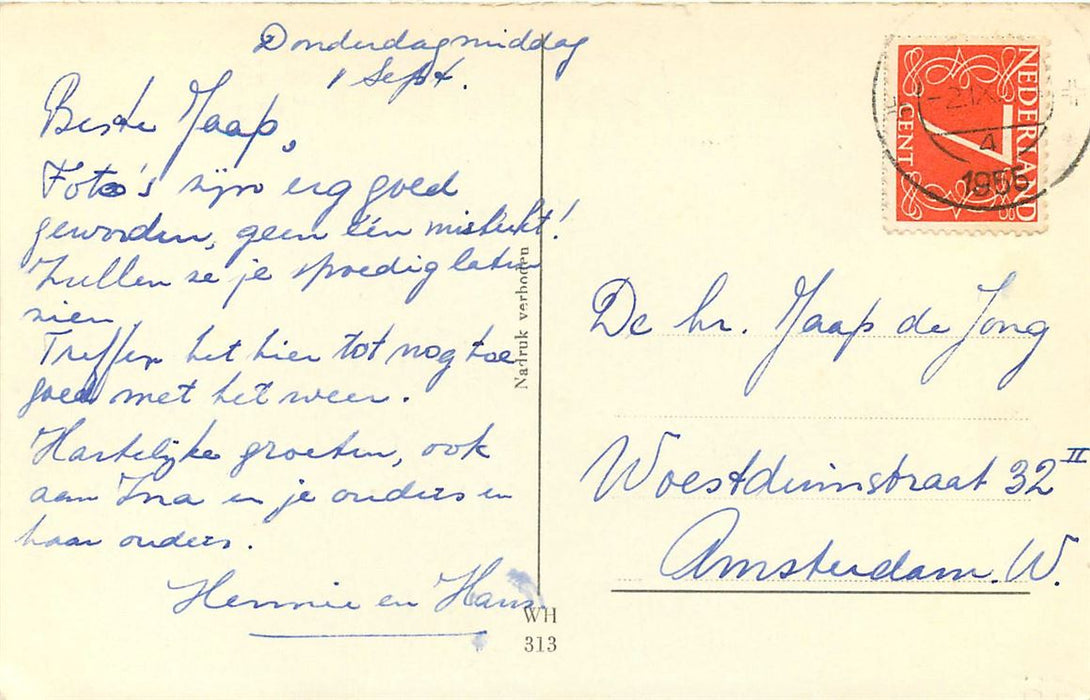 Donderdagmiddag
1 Sept.
Beste Jaap,
Foto's zijn erg goed
geworden, geen één mislukt!
Zullen ze je spoedig laten
zien
Treffen het hier tot nog toe
goed met het weer.
Hartelijke groeten, ook
aan Ina en je ouders en
haar ouders.
Hennie en Hans
Nadruk verboden
WH
313
NEDERLAND
7
CENT
-2.IX
4
1955
De hr. Jaap de Jong
Woestduinstraat 32 II
Amsterdam. W.